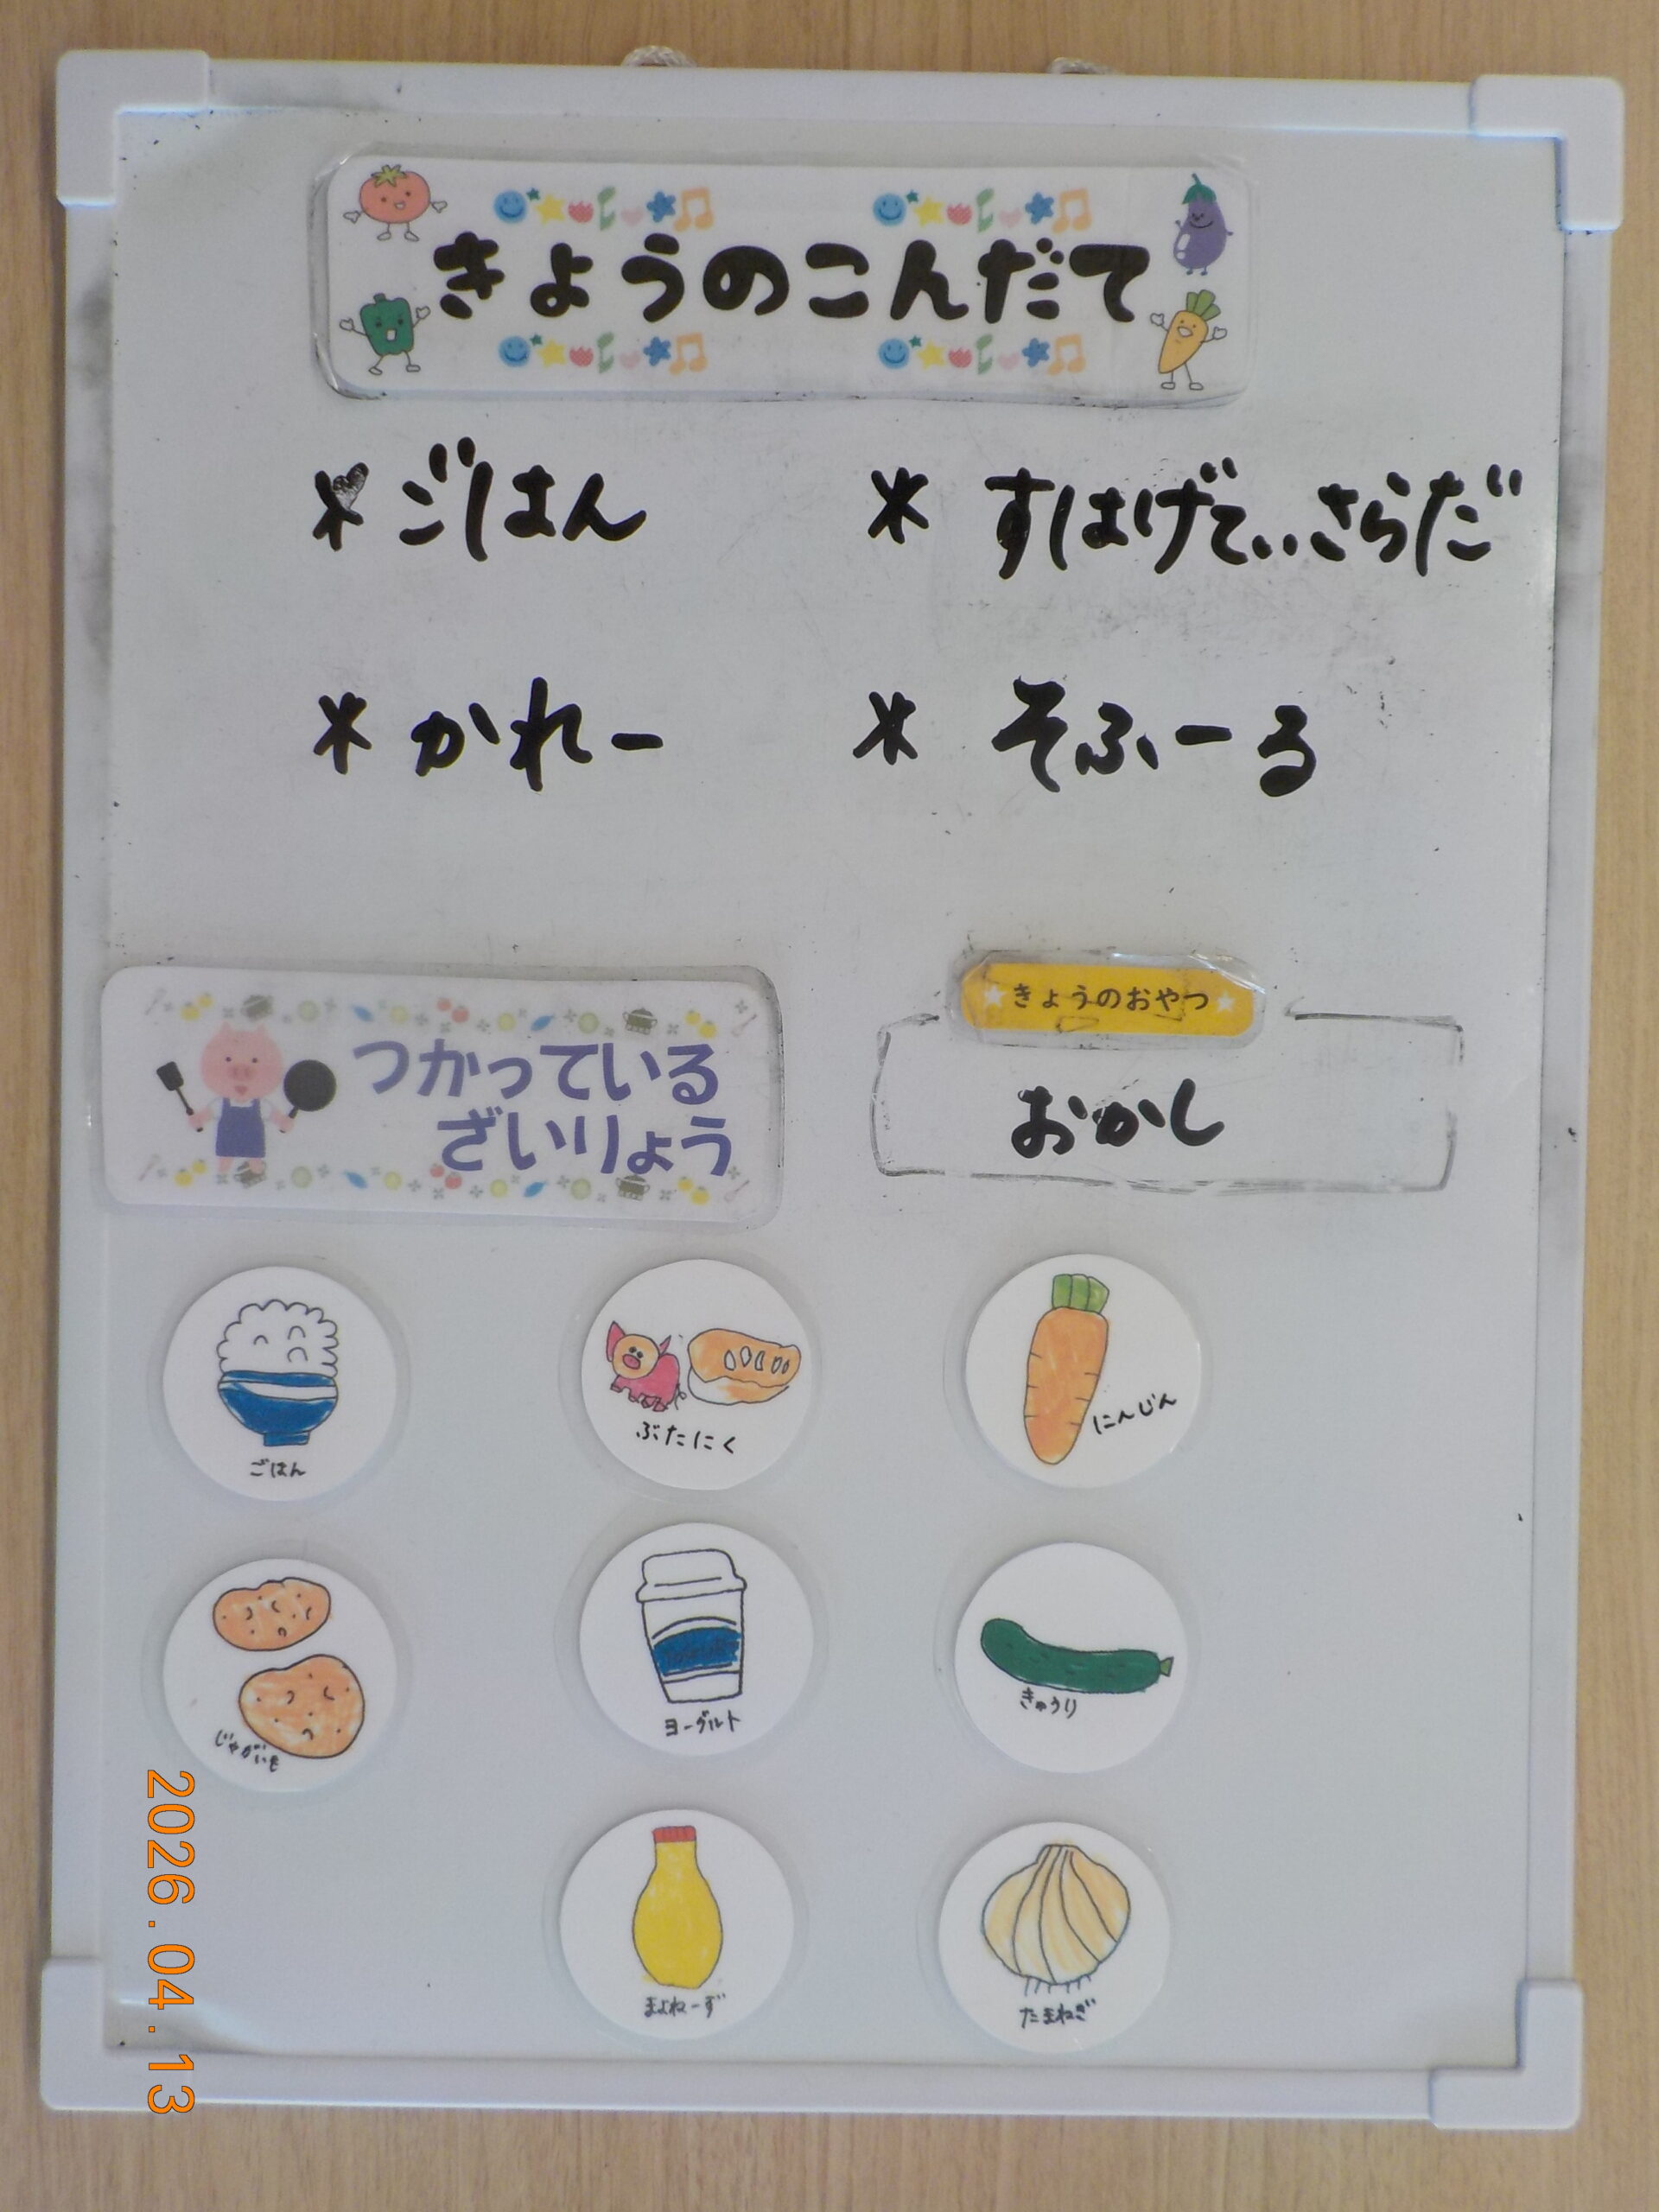 きょうのこんだて
* ごはん
* すはげてぃさらだ
* かれー
* そふーる
つかっている
ざいりょう
きょうのおやつ
おかし
ごはん
ぶたにく
にんじん
じゃがいも
ヨーグルト
きゅうり
まよねーず
たまねぎ
2026.04.13